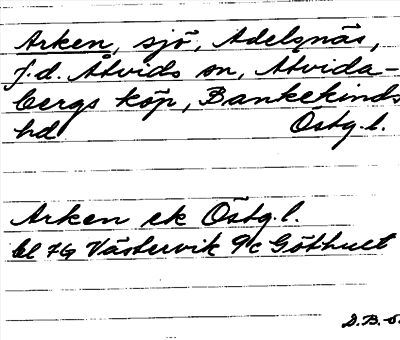 Arken, sjö, Adelsnäs,
f.d. Åtvids sn, Åtvida-
bergs köp, Bankekinds
hd Östg.l.
Arken ek Östg.l.
bl 7G Västervik 9c Göthult
D.B.-5.